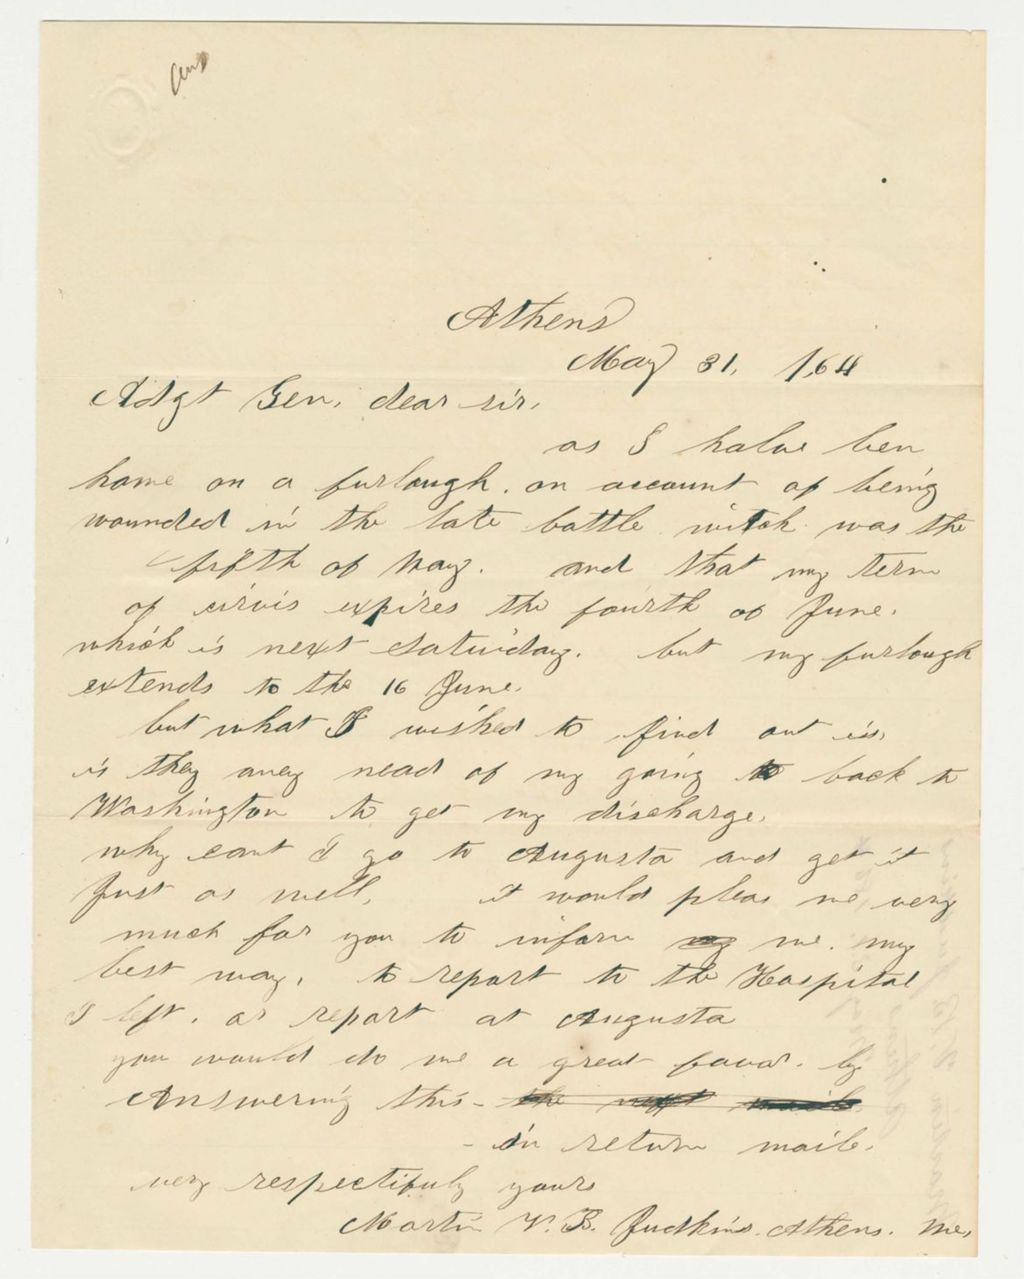 Ans
Athens
May 31, 1864
Adgt Gen, dear sir,
as I halve ben
home on a furlough. on account of being
wounded in the late battle witch was the
fifth of May. and that my term
of sirvis expires the fourth of June.
which is next Saturday. but my furlough
extends to the 16 June.
but what I wished to find out is,
is they aney nead of my going to back to
Washington to get my discharge.
why cant I go to Augusta and get it
Just as well, it would pleas me very
much for you to inform my me. my
best way, to report to the Hospital
I left. or report at Augusta
you would do me a great favor. by
Answering this - the next mail
- in return mail.
very respectifuly yours
Martin V. B. Judkins. Athens. Me,